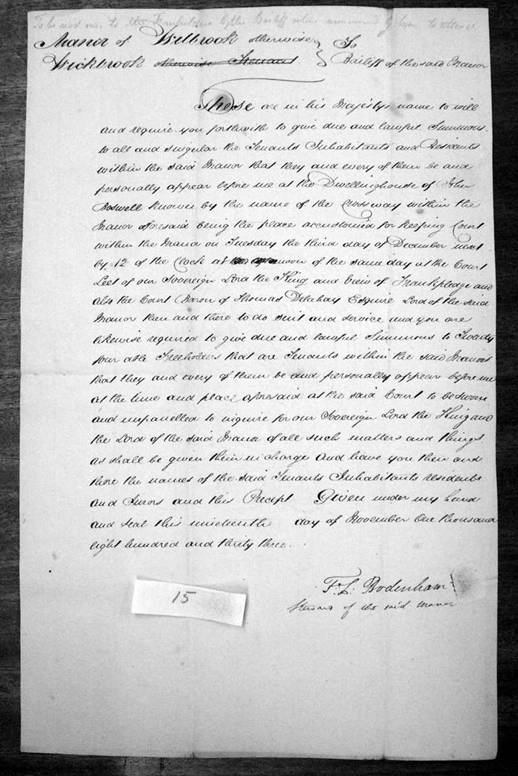 Manor of Welbrook otherwise } To
Wickbrook otherwise Steward } Bailiff of the said Manor
These are in his Majestys name to will
and require you forthwith to give due and lawful Summons
to all and singular the Tenants Inhabitants and Residents
within the said Manor that they and every of them be and
personally appear before me at the Dwellinghouse of John
Boswell known by the name of the Crossway within the
Manor aforesaid being the place accustomed for keeping Court
within the Manor on Tuesday the third day of December next
by 12 of the Clock at noon of the same day at the Court
Leet of our Sovereign Lord the King and View of Frankpledge and
also the Court Baron of Thomas Esquire Lord of the said
Manor then and there to do suit and service and you are
likewise required to give due and lawful Summons to Twenty
four able Freeholders that are Tenants within the said Manor
that they and every of them be and personally appear before me
at the time and place aforesaid at the said Court to be sworn
and impanelled to inquire for our Sovereign Lord the King and
the Lord of the said Manor of all such matters and things
as shall be given them in charge And have you then and
there the names of the said Tenants Inhabitants residents
and Jurors and this Precept Given under my hand
and seal this nineteenth day of November One thousand
eight hundred and thirty three.
F. L. Bodenham
Steward of the said Manor
15